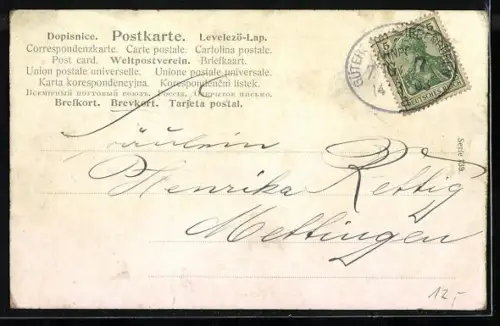 Dopisnice. Postkarte. Levelező-Lap.
Correspondenzkarte. Carte postale. Cartolina postale.
Post card. Weltpostverein. Briefkaart.
Union postale universelle. Unione postale universale.
Karta korespondencyjna. Korespondenčni listek.
Всемірный почтовый союзъ. Россія. Открытое письмо.
Brefkort. Brevkort. Tarjeta postal.
DEUTSCHES REICH
14
Serie
Fräulein
Henrika Rettig
Mettingen
12,-